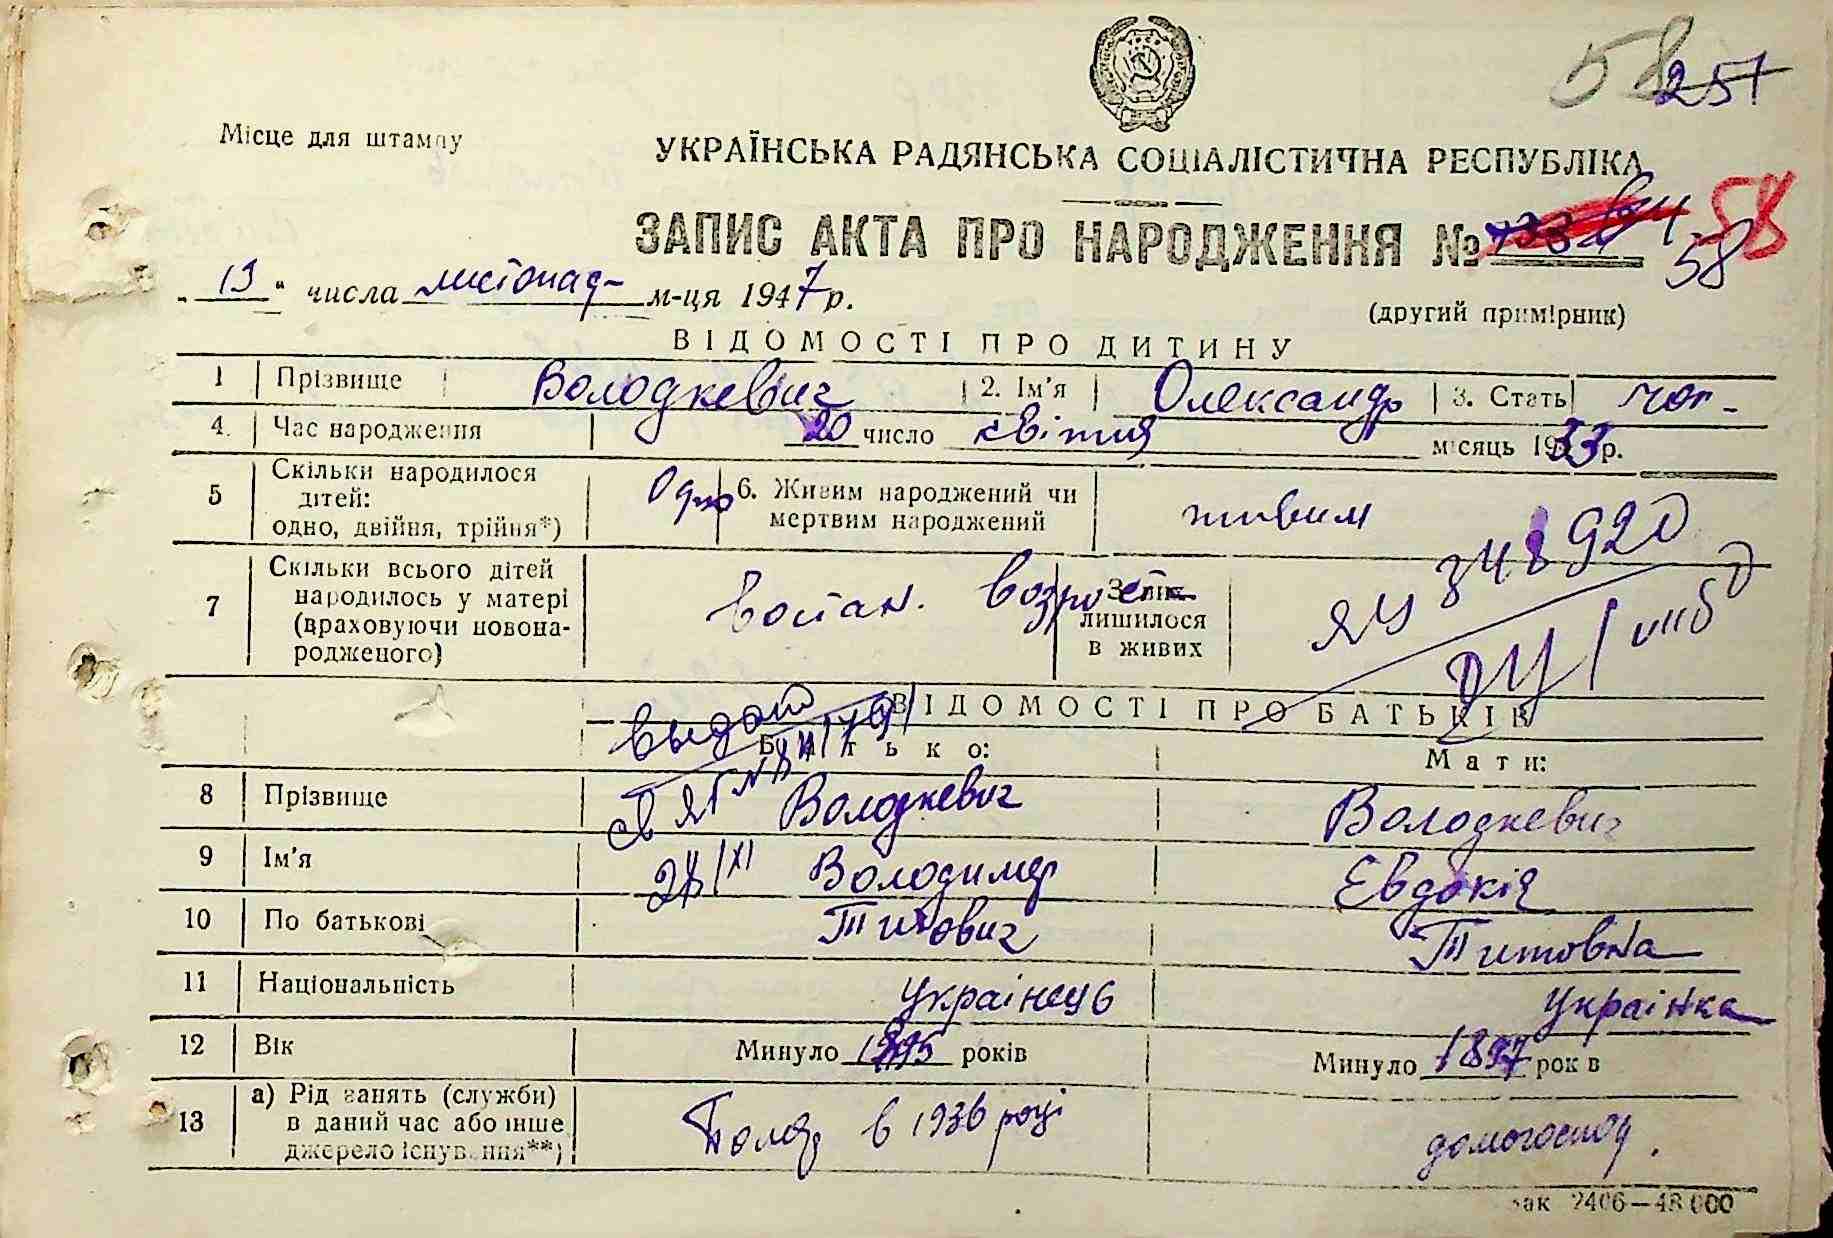 58 257
Місце для штампу
УКРАЇНСЬКА РАДЯНСЬКА СОЦІАЛІСТИЧНА РЕСПУБЛІКА
ЗАПИС АКТА ПРО НАРОДЖЕННЯ № 58
58
„ 13 " числа листопад- м-ця 1947 р.
(другий примірник)
ВІДОМОСТІ ПРО ДИТИНУ
1 Прізвище Володкевич 2. Ім'я Олександр 3. Стать чол-
4. Час народження 20 число квітня місяць 1933 р.
5 Скільки народилося дітей: одно, двійня, трійня*) Одно 6. Живим народжений чи мертвим народжений живим
7 Скільки всього дітей народилось у матері (враховуючи новонародженого) востан. возраст. З них лишилося в живих
ЯЦ 348920
ВІДОМОСТІ ПРО БАТЬКІВ
выдано
Батько: Мати:
8 Прізвище Володкевич Володкевич
9 Ім'я Володимер Євдокія
28/XI
10 По батькові Титович Титовна
11 Національність українець українка
12 Вік Минуло 1895 років Минуло 1897 років
13 а) Рід занять (служби) в даний час або інше джерело існування**) Помер в 1936 році домогоспод.
Зак 2406—48 000